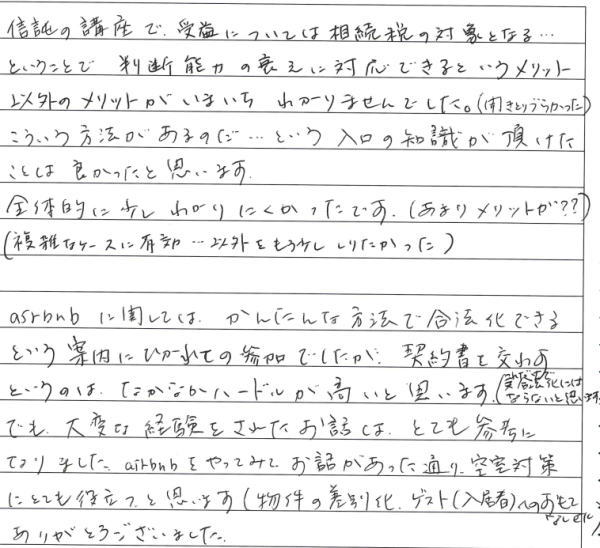 信託の講座で、受益については相続税の対象となる…
ということで 判断能力の衰えに対応できるというメリット
以外のメリットがいまいち わかりませんでした。(聞きとりづらかった)
こういう方法があるのだ…という 入口の知識が頂けた
ことは 良かったと思います。
全体的に少し わかりにくかったです。(あまりメリットが??)
(複雑なケースに有効…以外をもう少ししりたかった)
airbnb に関しては、かんたんな方法で合法化できる
という案内にひかれての参加でしたが、契約書を交わす
というのは、なかなかハードルが高いと思います。(
合法化には
ならないと思います
でも、大変な経験をされたお話は、とても参考に
なりました。airbnbをやってみて お話があった通り、空室対策
にとても役立つと思います(物件の差別化、ゲスト(入居者)へのおもて
なしetc)
ありがとうございました。